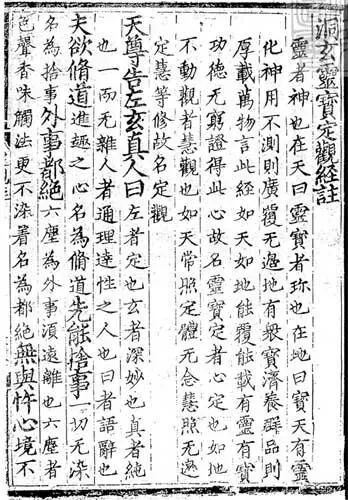 洞玄靈寶定觀經註
靈者神也在天曰靈寶者珎也在地曰寶天有靈
化神用不測則廣覆无邊地有衆寶濟養群品則
厚載萬物言此經如天如地能覆能載有靈有寶
功德无窮證得此心故名靈寶定者心定也如地
不動觀者慧觀也如天常照定體无念慧照无邊
定慧等修故名定觀
天尊告左玄真人曰左者定也玄者深妙也真者純
也一而无雜人者通理達性之人也曰者語辭也
夫欲脩道進趣之心名為脩道先能捨事一切无染
名為捨事外事都絕六塵為外事須遠離也六塵者
色聲香味觸法更不染著名為都絕無與忤心境不